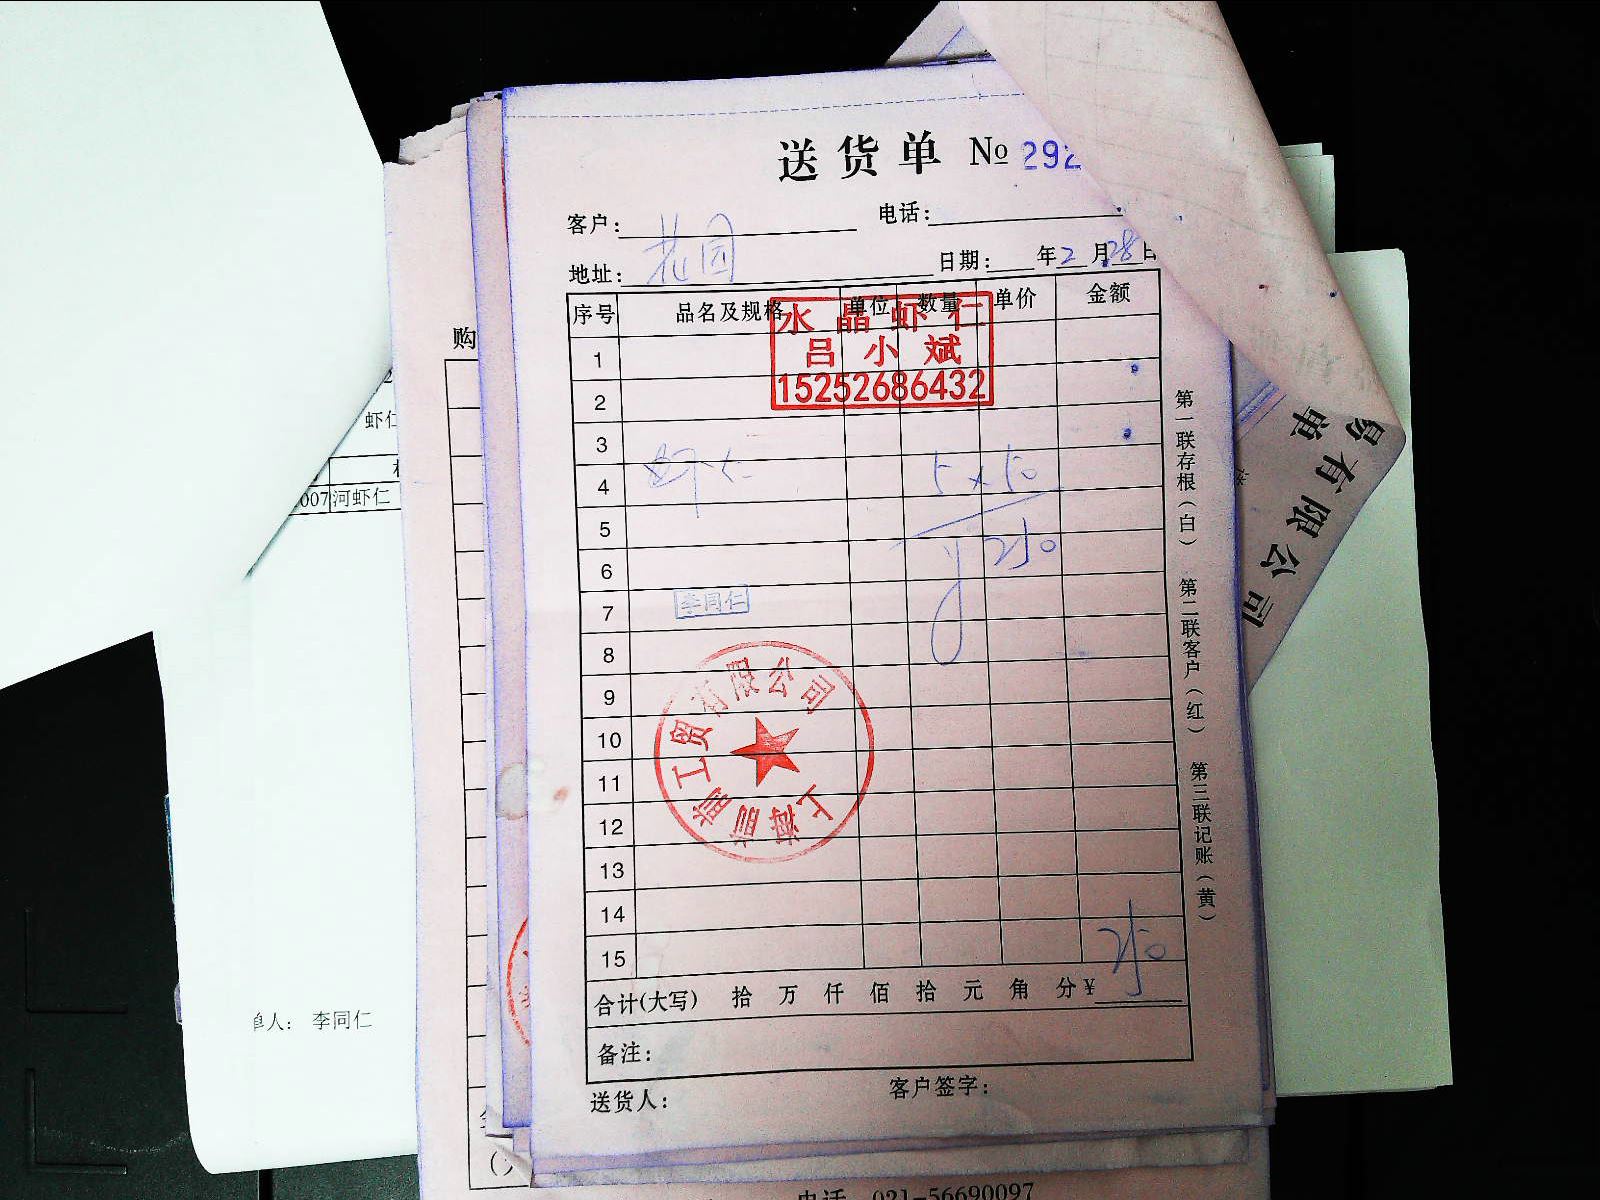 送货单 № 292
客户： 电话：
花园
地址： 日期： 年2月28日
序号 品名及规格 单位 数量 单价 金额
水晶虾仁
吕小斌
15252686432
1
2
3
4 虾仁 5×50
5
6 250
7 李同仁
8
9
10
11
12
13
14
15
250
合计(大写) 拾 万 仟 佰 拾 元 角 分 ¥
备注：
送货人： 客户签字：
上海前前工贸有限公司
第一联存根（白） 第二联客户（红） 第三联记账（黄）
购
虾仁
007 河虾仁
单人： 李同仁
易有限公司
单
电话 021-56690097